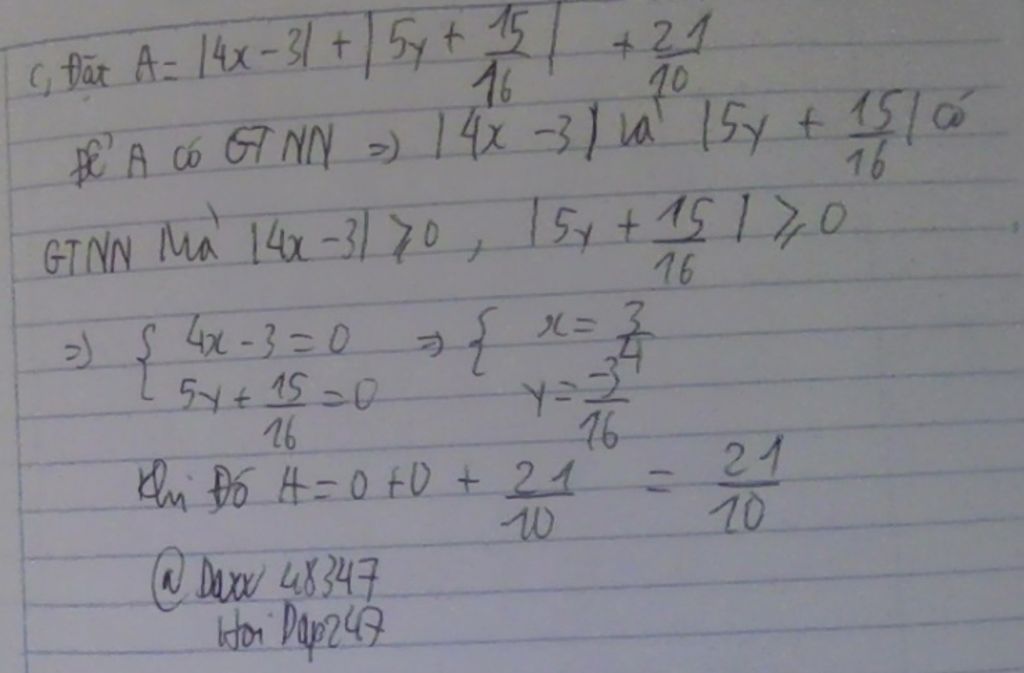 c, Đặt A = |4x - 3| + |5y + 15/16| + 21/10
Để A có GTNN => |4x - 3| và |5y + 15/16| có
GTNN Mà |4x - 3| ⩾ 0 , |5y + 15/16| ⩾ 0
=> { 4x - 3 = 0 => { x = 3/4
5y + 15/16 = 0 y = -3/16
Khi Đó A = 0 + 0 + 21/10 = 21/10
@Daxx 48347
Hoi Dap247